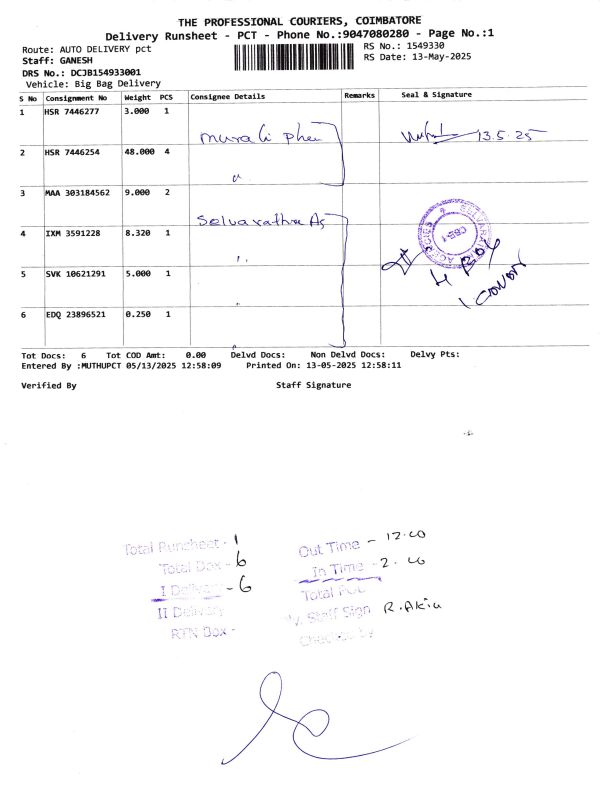 THE PROFESSIONAL COURIERS, COIMBATORE
Delivery Runsheet - PCT - Phone No.:9047080280 - Page No.:1
Route: AUTO DELIVERY pct
RS No.: 1549330
Staff: GANESH
RS Date: 13-May-2025
DRS No.: DCJB154933001
Vehicle: Big Bag Delivery
S No Consignment No Weight PCS Consignee Details Remarks Seal & Signature
1 HSR 7446277 3.000 1
Murali 13.5.25
2 HSR 7446254 48.000 4
"
3 MAA 303184562 9.000 2
4 IXM 3591228 8.320 1
"
5 SVK 10621291 5.000 1
"
6 EDQ 23896521 0.250 1
4 BOX
1 COVER
Tot Docs: 6 Tot COD Amt: 0.00 Delvd Docs: Non Delvd Docs: Delvy Pts:
Entered By :MUTHUPCT 05/13/2025 12:58:09 Printed On: 13-05-2025 12:58:11
Verified By Staff Signature
Total Runsheet - 1
Out Time - 12.00
Total Box - 6
In Time - 2.00
I Delivery - 6
Total POD
II Delivery
Staff Sign
RTN Box -
Checked by